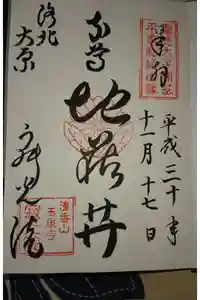 奉拝
平成三十年
十一月十七日
本尊
地蔵𦬇
洛北
大原
寂光院
清香山
玉泉寺